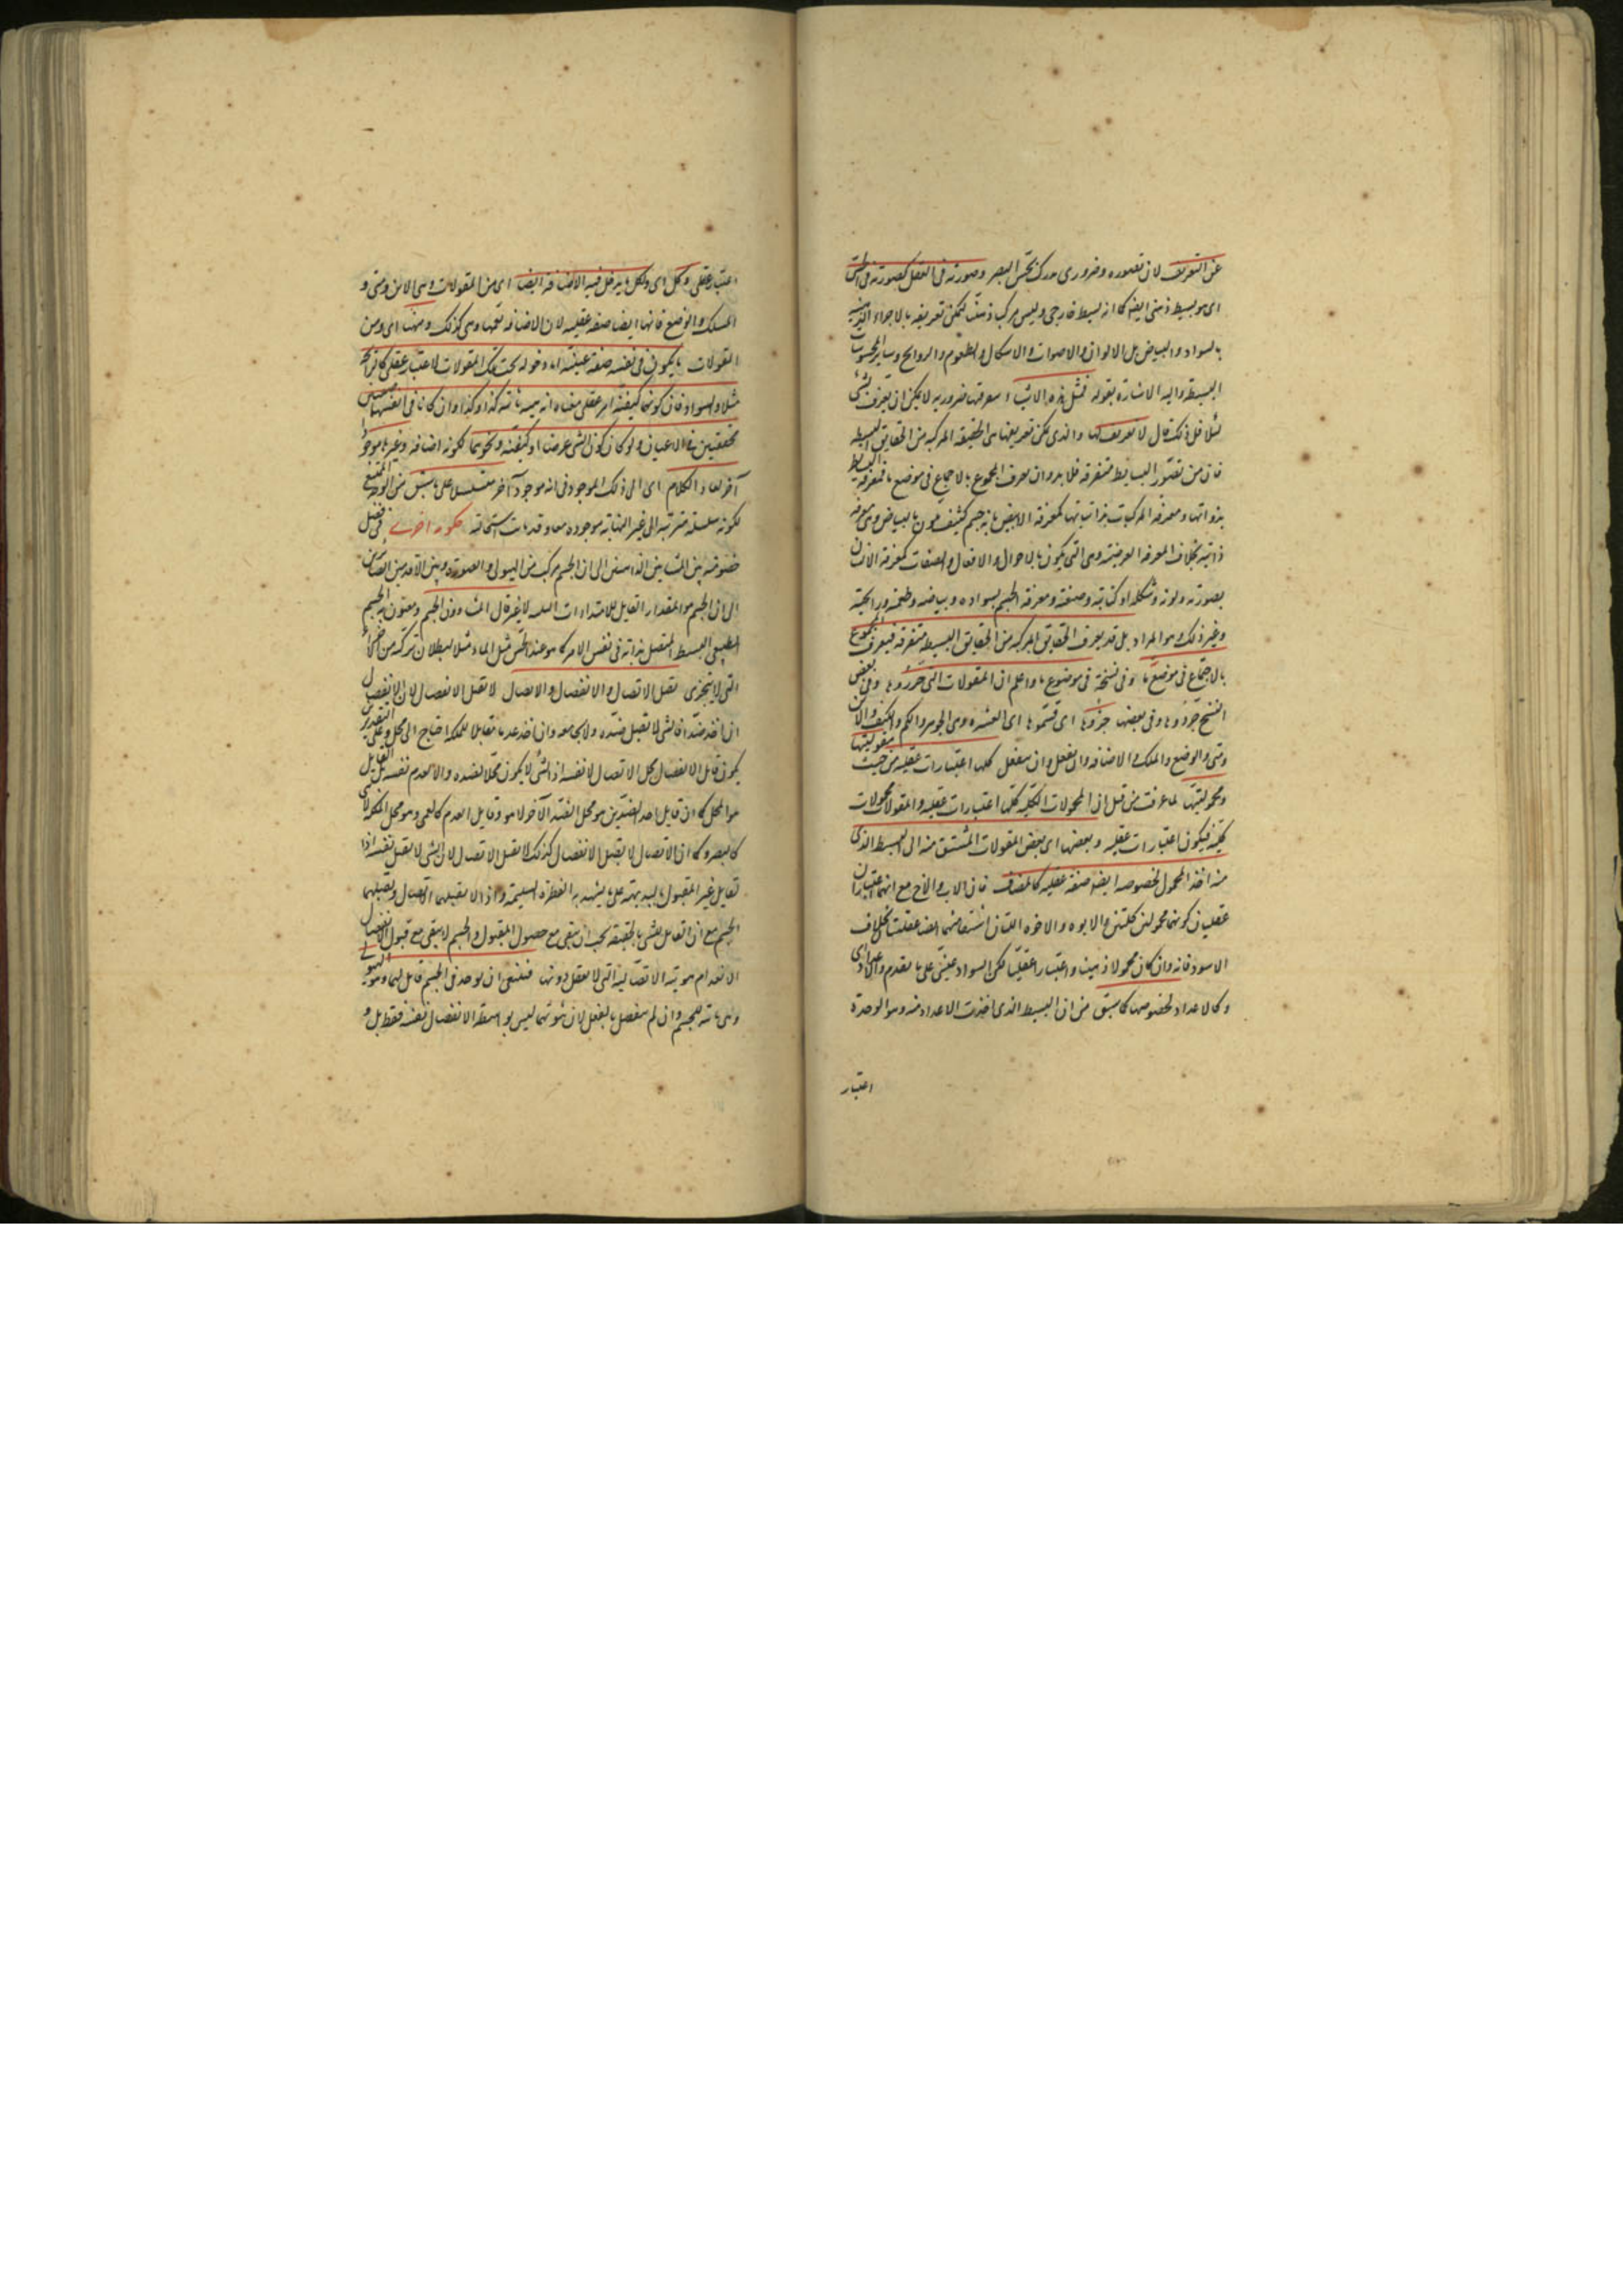 عن التعريف لان تصوره ضرورى مدرك بحس البصر وصورته فى العقل كصورته فى الحس
اى هو بسيط ذهنى ايضا كما انه بسيط خارجى وليس مركبا ذهنيا ليمكن تعريفه بالاجزاء الذهنية
بالسواد والبياض بل الالوان والاصوات والاشكال والطعوم والروايح وساير المحسوسات
البسيطة واليه الاشارة بقوله فمثل هذه الاشياء معرفتها ضرورية لا يمكن ان يعرف بشئ
فلاجل ذلك قال لا تعريف لها والذى يمكن تعريفها هى الحقيقة المركبة من الحقايق البسيطة
فان من تصور البسايط متفرقة فلا بد وان يعرف المجموع بالاجماع فى موضع ما فمعرفة البسايط
بذواتها ومعرفة المركبات بذاتياتها كمعرفة الابيض بانه جسم كثيف ملون بالبياض وهى معرفة
ذاتية بخلاف المعرفة العرضية وهى التى يكون بالاحوال والافعال والصفات كمعرفة الانسان
بصورته ولونه وشكله او كتابته وصنعته ومعرفة الجسم بسواده وبياضه وطعمه ورايحته
وغير ذلك وهو المراد بل قد يعرف الحقايق المركبة من الحقايق البسيطة متفرقة فيعرف المجموع
بالاجتماع فى موضع ما وفى نسخة فى موضوع ما واعلم ان المقولات التى حرروها وفى بعض
النسخ جردوها وفى بعضها جزؤها اى قسموها اى العشرة وهى الجوهر والكم والكيف والاين
ومتى والوضع والملك والاضافة وان يفعل وان ينفعل كلها اعتبارات عقلية من حيث مقوليتها
ومحموليتها لما عرفت من قبل ان المحمولات الكلية كلها اعتبارات عقلية والمقولات محمولات
كلية فيكون اعتبارات عقلية وبعضها اى بعض المقولات المشتق منه اى البسيط الذى
منه اخذ المحمول لخصوصه ايضا صفة عقلية كالمضاف فان الاب والاخ مع انهما اعتباران
عقليان كونهما محمولين كليين والابوة والاخوة اللتان اشتقا منهما ايضا عقليتان بخلاف
الاسود فانه وان كان محمولا ذهنيا واعتبارا عقليا لكن السواد عينى على ما تقدم والاعداد اى
وكالاعداد لخصوصها كما سبق من ان البسيط الذى اخذت الاعداد منه وهو الوحدة
اعتبار
اعتبار عقلى وكل اى ولكل ما يدخل فيه الاضافة ايضا اى من المقولات وهى الاين ومتى و
الملك والوضع فانها ايضا صفة عقلية لان الاضافة تعمها وهى كذلك ومنها اى ومن
المقولات ما يكون فى نفسه صفة عينية اما دخوله تحت تلك المقولات لاعتبار عقلى كالرايحة
مثلا والسواد فان كونهما كيفية امر عقلى معناه انه هيئة ثابتة كذا وكذا وان كانا فى انفسهما صفتين
محققتين فى الاعيان ولو كان كون الشئ عرضا او كيفية ونحوهما ككونه اضافة وغيرها موجودا
آخر لعاد الكلام اى الى ذلك الموجود فى انه موجود آخر متسلسلا على ما سبق من الوجه الممتنع
لكونه سلسلة مترتبة الى غير النهاية موجودة معا وقد بان استحالته حكومة اخرى فى فصل
خصومة بين المشائين الذاهبين الى ان الجسم مركب من الهيولى والصورة وبين الاقدمين الصائرين
الى ان الجسم هو المقدار القابل للامتدادات الثلثة لا غير قال المشاؤون الجسم ويعنون به الجسم
الطبيعى البسيط المتصل بذاته فى نفس الامر كما هو عند الحس مثل الماء مثلا لبطلان تركبه من الاجزاء
التى لا يتجزى يقبل الاتصال والانفصال والاتصال لا يقبل الانفصال لان الانفصال
ان اخذ ضدا فالشئ لا يقبل ضده ولا يجامعه وان اخذ عدما مقابلا للملكة احتاج الى محل وعلى التقديرين
يكون قابل الانفصال محل الاتصال لا نفسه اذ الشئ لا يكون محلا لضده والا لعدم نفسه بل القابل
هو المحل كما ان قابل احد الضدين هو محل الضد الآخر لا هو وقابل العدم كالعمى هو محل الملكة لا هى
كالبصر وكما ان الاتصال لا يقبل الانفصال كذلك لا يقبل الاتصال لان الشئ لا يقبل نفسه اذ
القابل غير المقبول بالبديهة على ما يشهد به الفطرة السليمة واذ لا يقبلهما الاتصال ويقبلهما
الجسم مع ان القابل للشئ بالحقيقة يجب ان يبقى مع حصول المقبول والجسم لا يبقى مع قبول الانفصال
لانعدام هويته الاتصالية التى لا يعقل دونها فينبغى ان يوجد فى الجسم قابل لهما وهو الهيولى
وهى ثابتة للجسم وان لم ينفصل بالفعل لان ثبوتها ليس بواسطة الانفصال نفسه فقط بل و